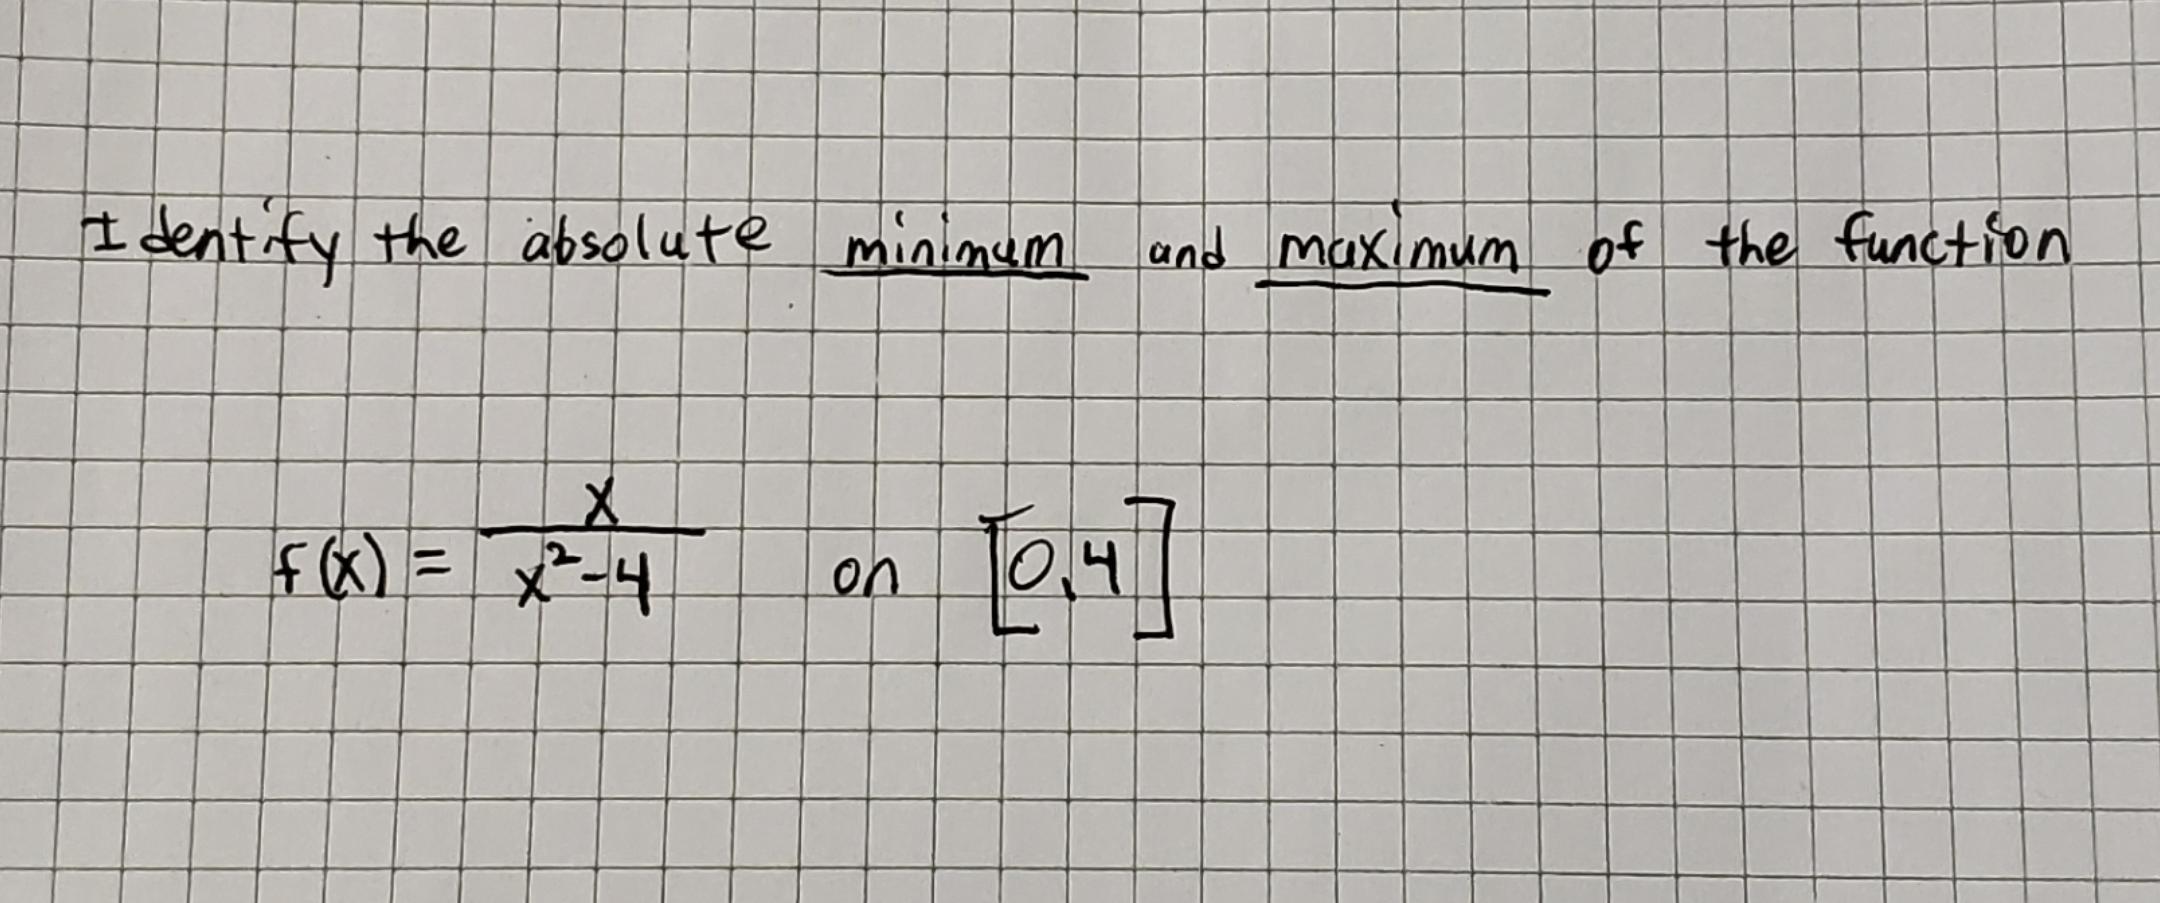 Identify the absolute minimum and maximum of the function
f(x) = x/(x²-4) on [0,4]